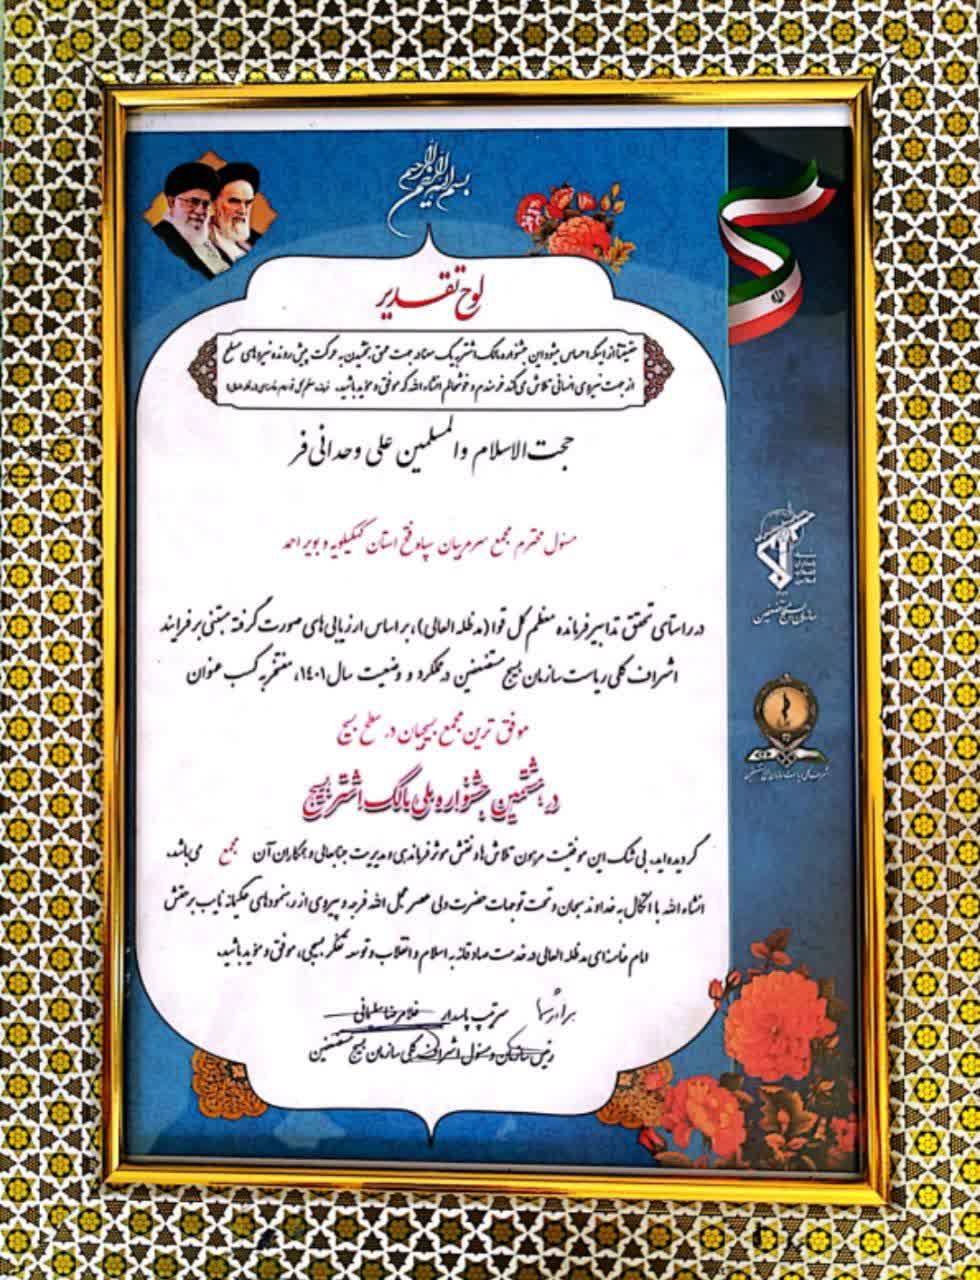 بسم الله الرحمن الرحیم
لوح تقدیر
حقیقتاً از اینکه احساس میشود این جشنواره مالک اشتر به یک معنا در جهت عمق بخشیدن به حرکت پیش رونده نیروهای مسلح
از جهت نیروی انسانی تلاش می‌کند خرسندم و خوشحالم انشاءالله که موفق و مؤید باشید.
حجت الاسلام والمسلمین علی وحدانی فر
مسئول محترم مجمع سرمربیان سپاه فتح استان کهگیلویه و بویر احمد
در راستای تحقق تدابیر فرمانده معظم کل قوا (مدظله العالی)، بر اساس ارزیابی‌های صورت گرفته مبتنی بر فرایند
اشراف کلی ریاست سازمان بسیج مستضعفین در عملکرد و وضعیت سال ۱۴۰۱، مفتخر به کسب عنوان
موفق ترین مجمع بسیجیان در سطح بسیج
در هشتمین جشنواره ملی مالک اشتر بسیج
گردیده‌اید، بی شک این موفقیت مرهون تلاش‌ها و نقش موثر فرماندهی و مدیریت جنابعالی و همکاران آن مجمع می‌باشد.
انشاء الله با اتکال به خداوند سبحان و تحت توجهات حضرت ولی عصر عجل الله فرجه و پیروی از رهنمودهای حکیمانه نایب برحقش
امام خامنه‌ای مدظله العالی در خدمت صادقانه به اسلام و انقلاب و توسعه تفکر بسیجی، موفق و مؤید باشید.
برادر شما
سرتیپ پاسدار غلامرضا سلیمانی
رئیس سازمان و مسئول اشراف کلی سازمان بسیج مستضعفین
سپاه پاسداران انقلاب اسلامی
سازمان بسیج مستضعفین
اشراف کلی ریاست سازمان بسیج مستضعفین